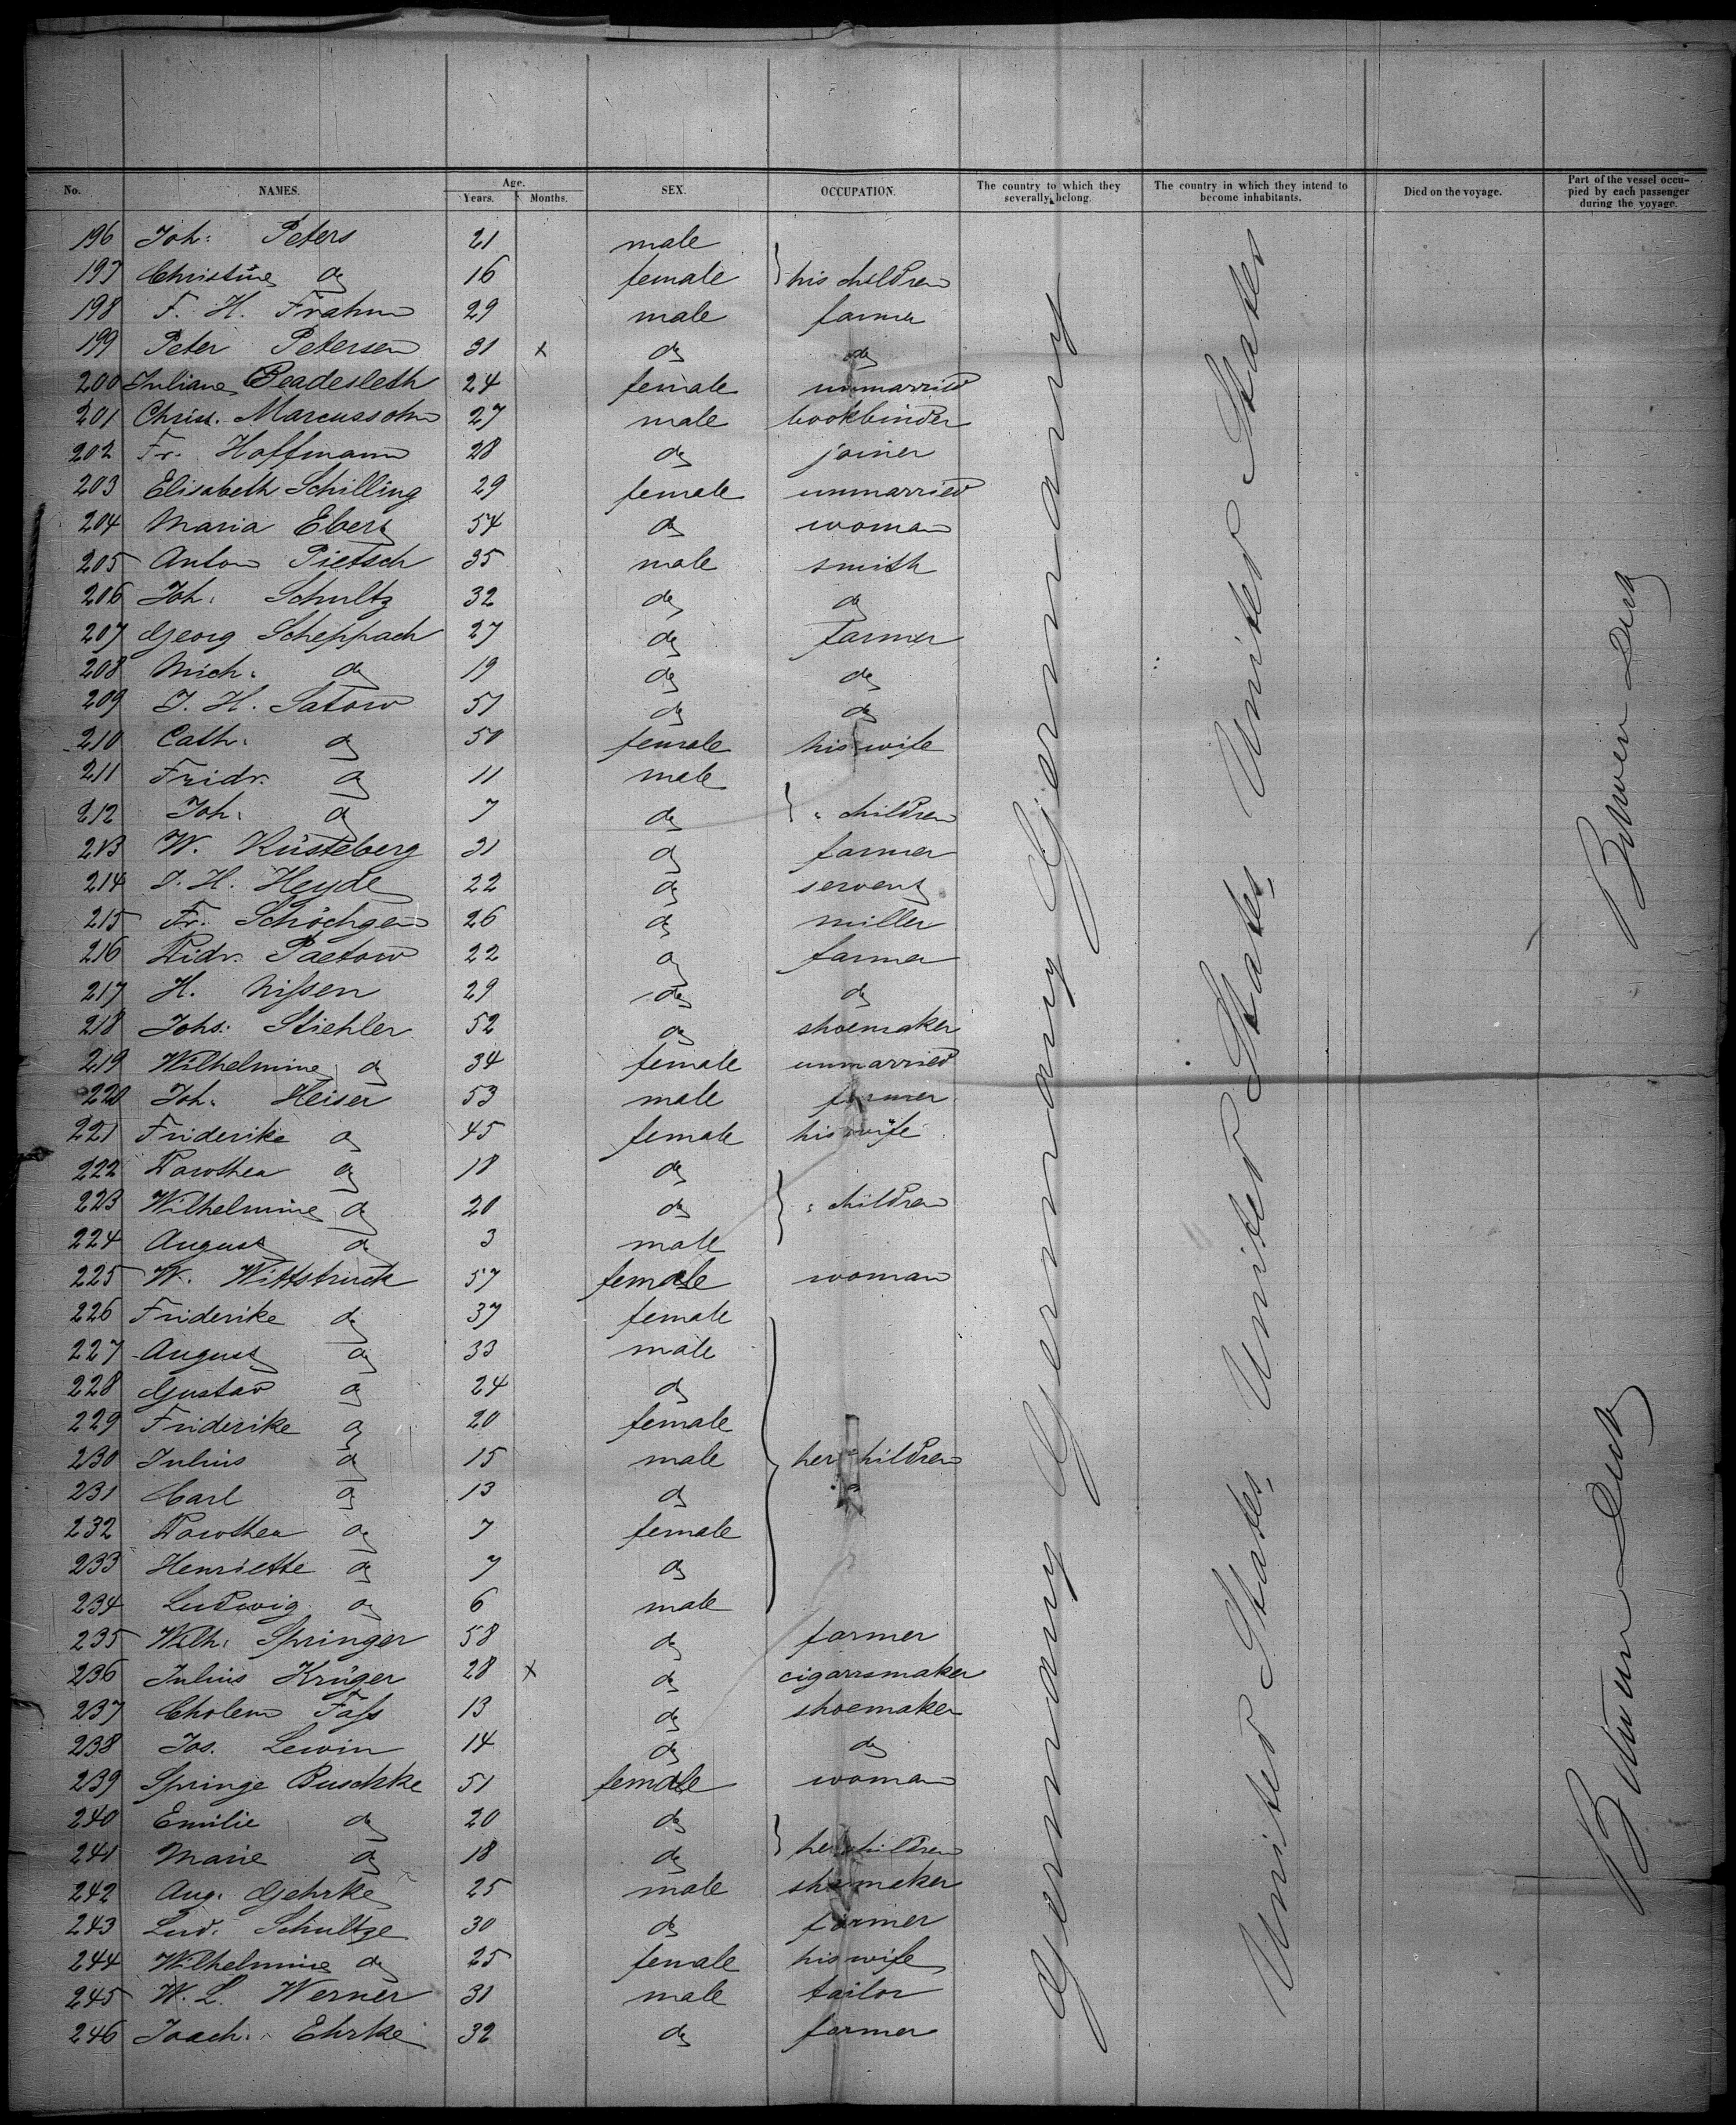 No. NAMES. Age. Years. Months. SEX. OCCUPATION. The country to which they severally belong. The country in which they intend to become inhabitants. Died on the voyage. Part of the vessel occupied by each passenger during the voyage.
196 Joh: Peters 21 male
197 Christine do 16 female } his children
198 F. H. Frahm 29 male farmer
199 Peter Petersen 31 x do do
200 Juliane Beadesleth 24 female unmarried
201 Christ. Marcussohn 27 male bookbinder
202 Fr. Hoffmann 28 do joiner
203 Elisabeth Schilling 29 female unmarried
204 Maria Ebert 54 do woman
205 Anton Pietsch 35 male smith
206 Joh. Schultz 32 do do
207 Georg Scheppach 27 do farmer
208 Mich. do 19 do do
209 J. H. Satow 51 do do
210 Cath. do 50 female his wife
211 Fridr. do 11 male
212 Joh. do 7 do } " children
213 W. Küsteberg 31 do farmer
214 J. H. Heyde 22 do servent
215 Fr. Schöchgen 26 do miller
216 Fidr. Paetow 22 do farmer
217 H. Nissen 29 do do
218 Johs: Stiehler 52 do shoemaker
219 Wilhelmine do 34 female unmarried
220 Joh. Heiser 53 male farmer
221 Friderike do 45 female his wife
222 Dorothea do 18 do
223 Wilhelmine do 20 do } " children
224 August do 3 male
225 W. Wittstruck 57 female woman
226 Friderike do 37 female
227 August do 33 male
228 Gustav do 24 do
229 Friderike do 20 female
230 Julius do 15 male } her children
231 Carl do 13 do
232 Dorothea do 7 female
233 Henriette do 7 do
234 Ludwig do 6 male
235 Wilh. Springer 58 do farmer
236 Julius Krüger 28 x do cigarrsmaker
237 Cholem Fass 13 do shoemaker
238 Jos. Lewin 14 do do
239 Springe Buschke 51 female woman
240 Emilie do 20 do
241 Marie do 18 do } her children
242 Aug. Gehrke 25 male shoemaker
243 Lud. Schultze 30 do farmer
244 Wilhelmine do 25 female his wife
245 W. L. Werner 31 male tailor
246 Joach. Ehrke 32 do farmer
Germany Germany Germany Germany
United States United States United States
Between Deck Between Deck